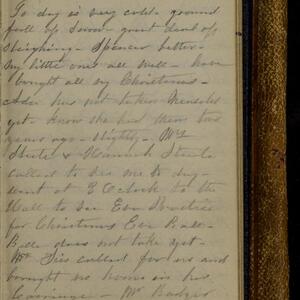 To day is very cold - ground
full of snow - great deal of
sleighing - Spencer better -
my little ones all well - have
bought all my Christmas -
Ada has not taken Measles
yet - know she had them two
years ago - slightly - Mrs
Steele & Hannah Steele
called to see me to day -
went at 3 O'Clock to the
Hall to see Eva Practice
for Christmas Eve Ball -
Belle does not take yet -
Mr Sis called for us and
brought us home in his
Carriage - Mr Badger